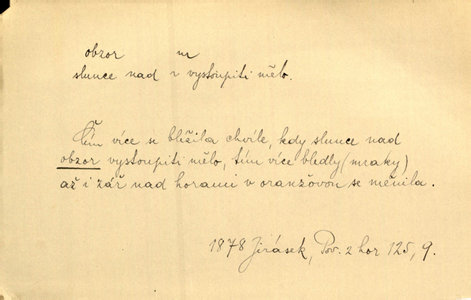 obzor m
slunce nad v vystoupiti mělo.
Čím více se blížila chvíle, kdy slunce nad
obzor vystoupiti mělo, tím více bledly (mraky)
až i zář nad horami v oranžovou se měnila.
1878 Jirásek, Pov. z hor 125, 9.